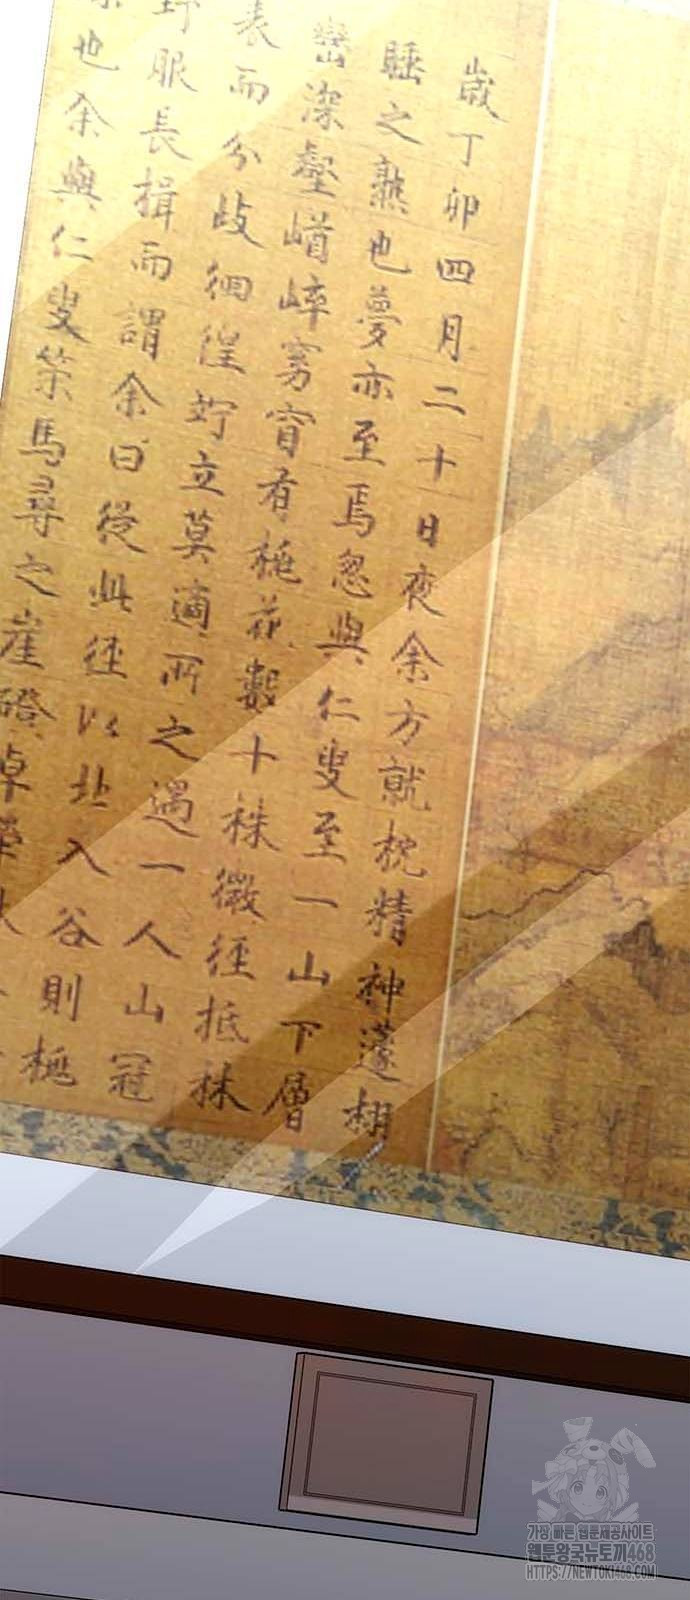 歲丁卯四月二十日夜余方就枕精神蘧栩
睡之熟也夢亦至焉忽與仁叟至一山下層
巒深壑崷崒窈窅有桃花數十株微徑抵林
表而分歧徊徨竚立莫適所之遇一人山冠
野服長揖而謂余曰從此徑以北入谷則桃
也余與仁叟策馬尋之崖磴卓犖
가장 빠른 웹툰제공사이트
웹툰왕국뉴토끼468
HTTPS://NEWTOKI468.COM